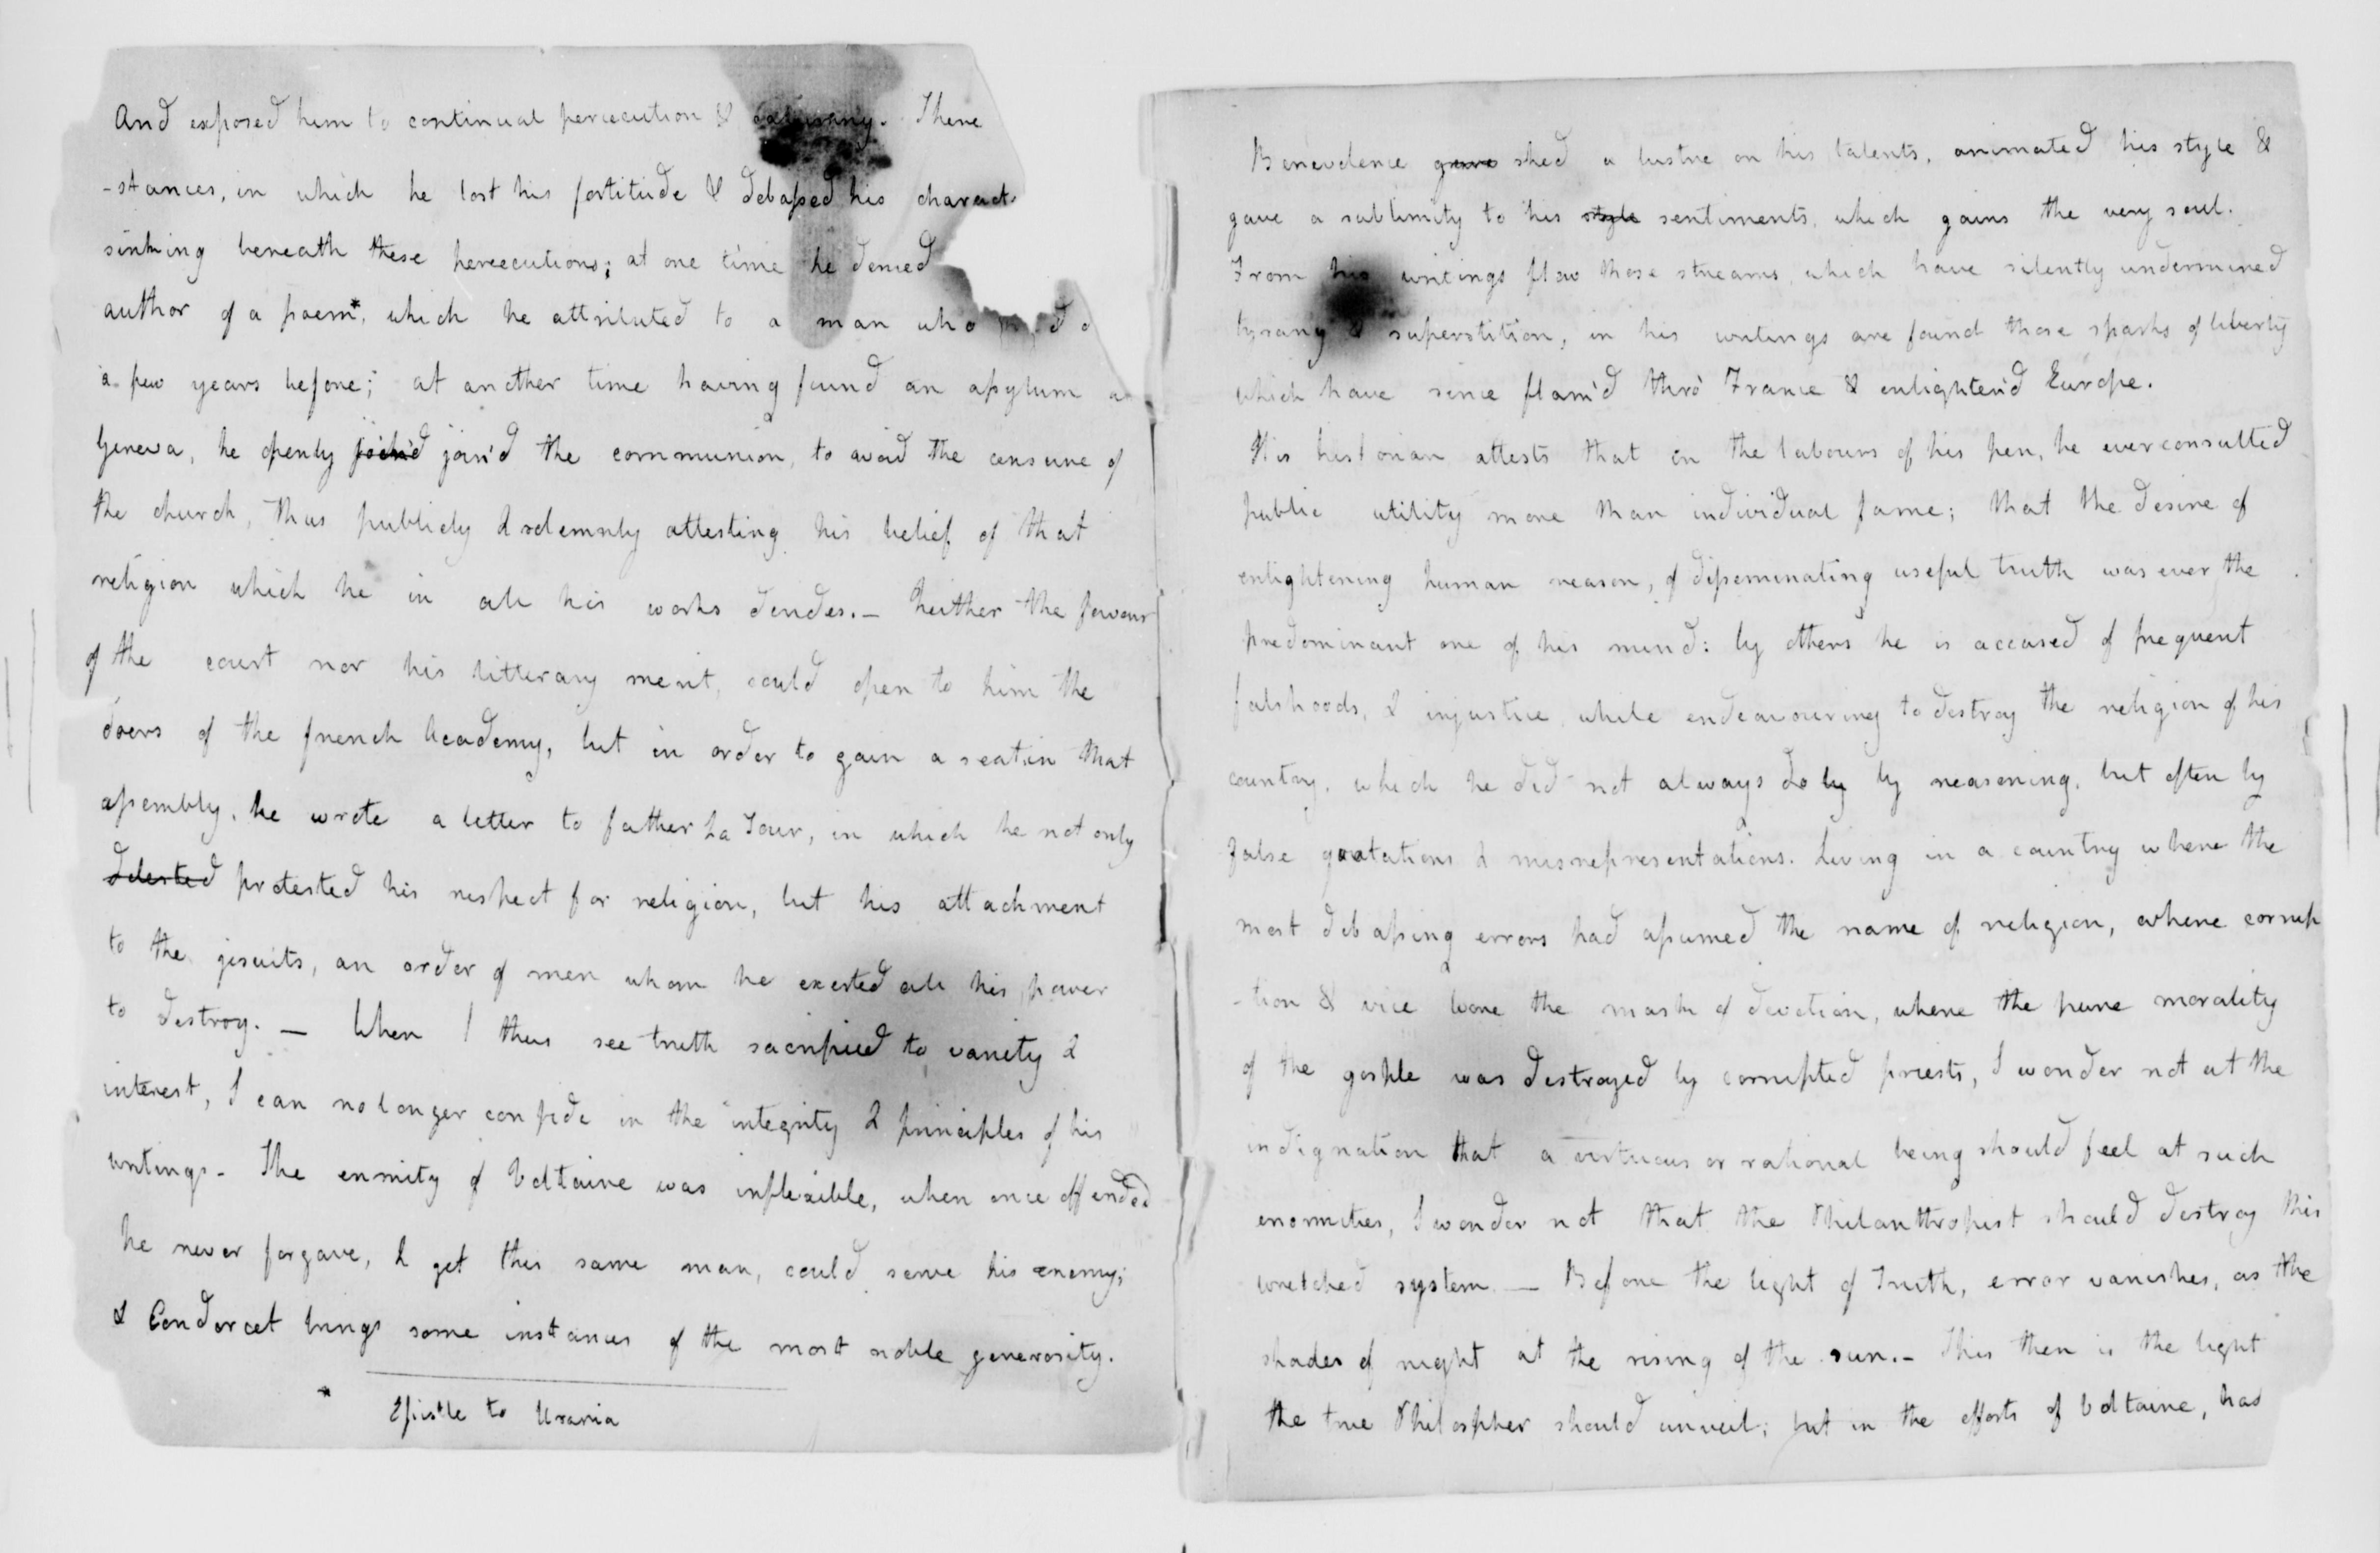 And exposed him to continual persecution & calumny. There
-stances, in which he lost his fortitude & debassed his charact
sinking beneath these persecutions; at one time he denied
author of a poem*, which he attributed to a man who
a few years before; at another time having found an assylum
Geneva, he openly join'd join'd the communion, to avoid the censure of
the church, thus publicly & solemnly attesting his belief of that
religion which he in all his works derides.— Neither the favour
of the court nor his litterary merit, could open to him the
doors of the french Academy, but in order to gain a seat in that
assembly, he wrote a letter to father La Tour, in which he not only
protested his respect for religion, but his attachment
to the jesuits, an order of men whom he exerted all his power
to destroy. — When I thus see truth sacrificed to vanity &
interest, I can no longer confide in the integrity & principles of his
writings- The enmity of Voltaire was inflexible, when once offended
he never forgave, & yet this same man, could serve his enemy;
& Condorcet brings some instances of the most noble generosity.
* Epistle to Urania
Benevolence gave shed a lustre on his talents, animated his style &
gave a sublimity to his style sentiments, which gains the very soul.
From his writings flow those streams which have silently undermined
tyrany & superstition, in his writings are found those sparks of liberty
which have since flam'd thro' France & enlighten'd Europe.
His historian attests that in the labours of his pen, he ever consulted
public utility more than individual fame; that the desire of
enlightening human reason, of disseminating useful truth was ever the
predominant one of his mind: by others he is accused of frequent
falshoods, & injustice while endeavouring to destroy the religion of his
country, which he did not always do by by reasoning, but often by
false quotations & misrepresentations. Living in a country where the
most debassing errors had assumed the name of religion, where corrup
-tion & vice wore the mask of devotion, where the pure morality
of the gosple was destroyed by corrupted priests, I wonder not at the
indignation that a virtuous or rational being should feel at such
enormities, I wonder not that the Philanthropist should destroy this
wretched system — Before the light of Truth, error vanishes, as the
shades of night at the rising of the sun.— This then is the light
the true Philospher should unveil; but in the efforts of Voltaire, has